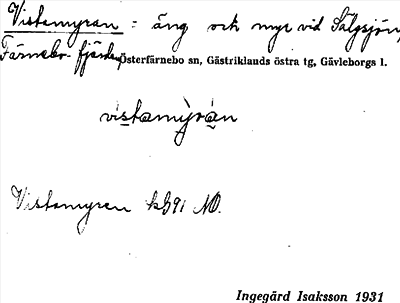 Vistamyran = äng och myr vid Sälgsjön,
Färnebo-fjärden Österfärnebo sn, Gästriklands östra tg, Gävleborgs l.
vistamỳràn
Vistamyren kb91 NO.
Ingegärd Isaksson 1931